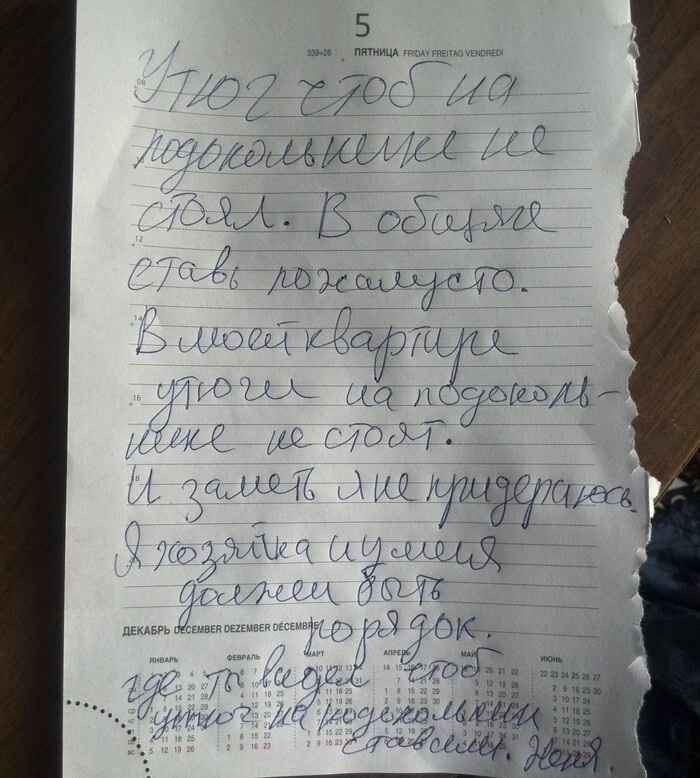 5
339÷26 ПЯТНИЦА FRIDAY FREITAG VENDREDI
08
Утюг чтоб на
подокольнике не
стоял. В общяге
12
ставь пожалусто.
14
В моей квартире
16
утюги на подоколь-
нике не стоят.
И заметь я не придераюсь.
Я хозяйка и у меня
должен быть
порядок.
ДЕКАБРЬ DECEMBER DEZEMBER DÉCEMBRE
ЯНВАРЬ ФЕВРАЛЬ МАРТ АПРЕЛЬ МАЙ ИЮНЬ
где ты видел чтоб
утюг на подокольник
ставили. Женя.